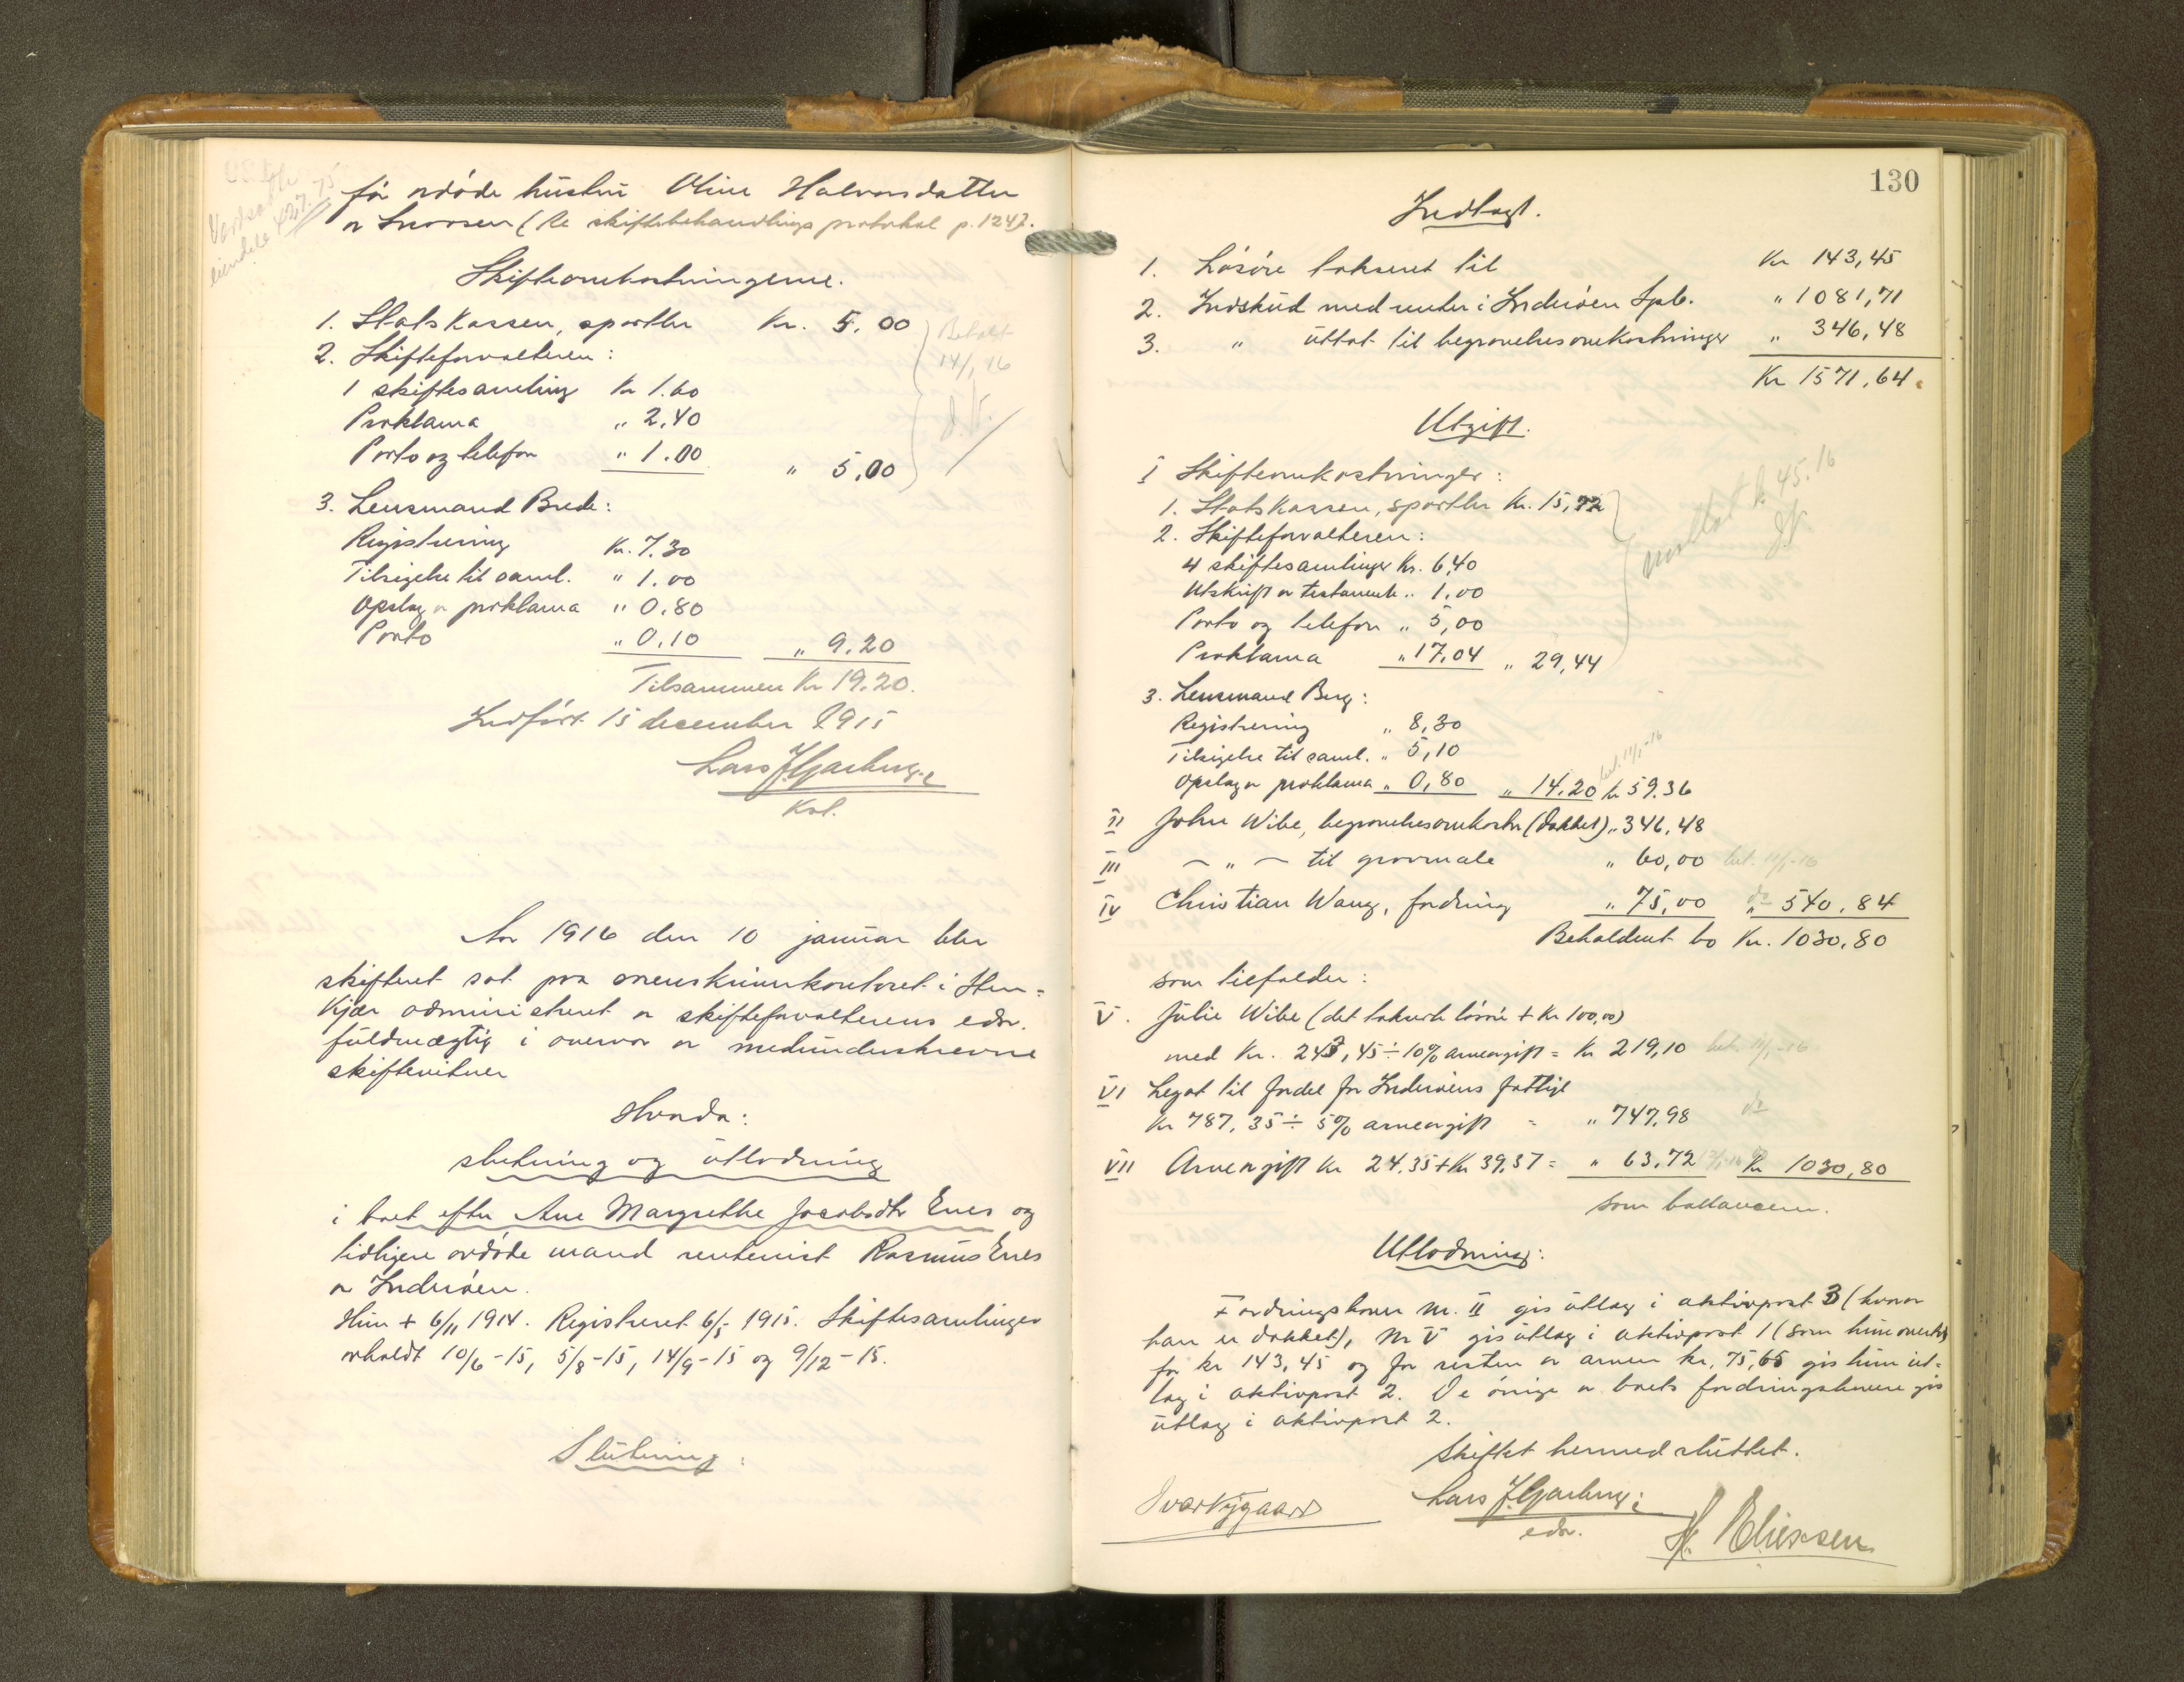 for avdøde hustru Oline Halvorsdatter
av Snaasen (Se skiftebehandlings protokol p. 124).
Skifteomkostningerne.
1. Statskassen, sportler Kr. 5,00
2. Skifteforvalteren:
1 skiftesamling Kr 1.60
Proklama " 2,40
Porto og telefon " 1.00 " 5,00
Betalt
14/1 16
3. Lensmand Brede:
Registrering Kr. 7.30
Tilsigelse til saml. " 1.00
Opslag av proklama " 0.80
Porto " 0.10 " 9.20
Tilsammen Kr 19.20.
Indført 15 december 1915
Lars J. Garberg.
Kst.
Aar 1916 den 10 januar blev
skifteret sat paa sorenskriverkontoret i Sten=
kjær administreret av skifteforvalterens edsv.
fuldmægtig i overvær av medunderskrevne
skiftevitner
Hvorda:
slutning og utlodning
i boet efter Ane Margrethe Jacobsdtr Enes og
tidligere avdøde mand rentenist Rasmus Enes
av Inderøen.
Hun + 6/11 1914. Registreret 6/5 1915. Skiftesamlinger
avholdt 10/6-15, 5/8-15, 14/9-15 og 9/12-15.
Slutning:
130
Indtægt.
1. Løsøre takseret til Kr 143,45
2. Indskud med renter i Inderøen Spb. " 1081,71
3. " uttat til begravelsesomkostninger " 346,48
Kr 1571,64.
Utgift.
I Skifteomkostninger:
1. Statskassen, sportler Kr. 15,72
2. Skifteforvalteren:
4 skiftesamlinger Kr. 6,40
Utskrift av testamente " 1,00
Porto og telefon " 5,00
Proklama " 17,04 " 29,44
mottat k. 45.16
3. Lensmand Berg:
Registrering " 8,30
Tilsigelse til saml. " 5,10
bet. 11/1-16
Opslag av proklama " 0,80 " 14.20 k 59.36
II John Wibe, begravelsesomkostn (dækket) " 346,48
III — " — til gravmæle " 60,00 bet. 11/1-16
IV Christian Wang, fordring " 75,00 do " 540,84
Beholdent bo Kr. 1030,80
som tilfalder:
V. Julie Wibe (det takserte løsøre + Kr 100,00)
med Kr. 243,45 ÷ 10% arveavgift = Kr 219,10 bet. 11/1-16
VI Legat til fordel for Inderøens fattige
Kr 787,35 ÷ 5% arveavgift = " 747,98 do
VII Arveavgift Kr 24.35 + Kr 39.37 = " 63,72 Kr 1030,80
som ballancerer.
Utlodning:
Fordringshaver nr. II gis utlæg i aktivpost 3 (hvorav
han er dækket), nr V gis utlæg i aktivpost 1 (som hun overtar
for kr 143,45 og for resten av arven kr. 75,65 gis hun ut=
læg i aktivpost 2. De øvrige av boets fordringshavere gis
utlæg i aktivpost 2.
Skiftet hermed sluttet.
Lars J. Garberg.
edsv.
H. Eliessen